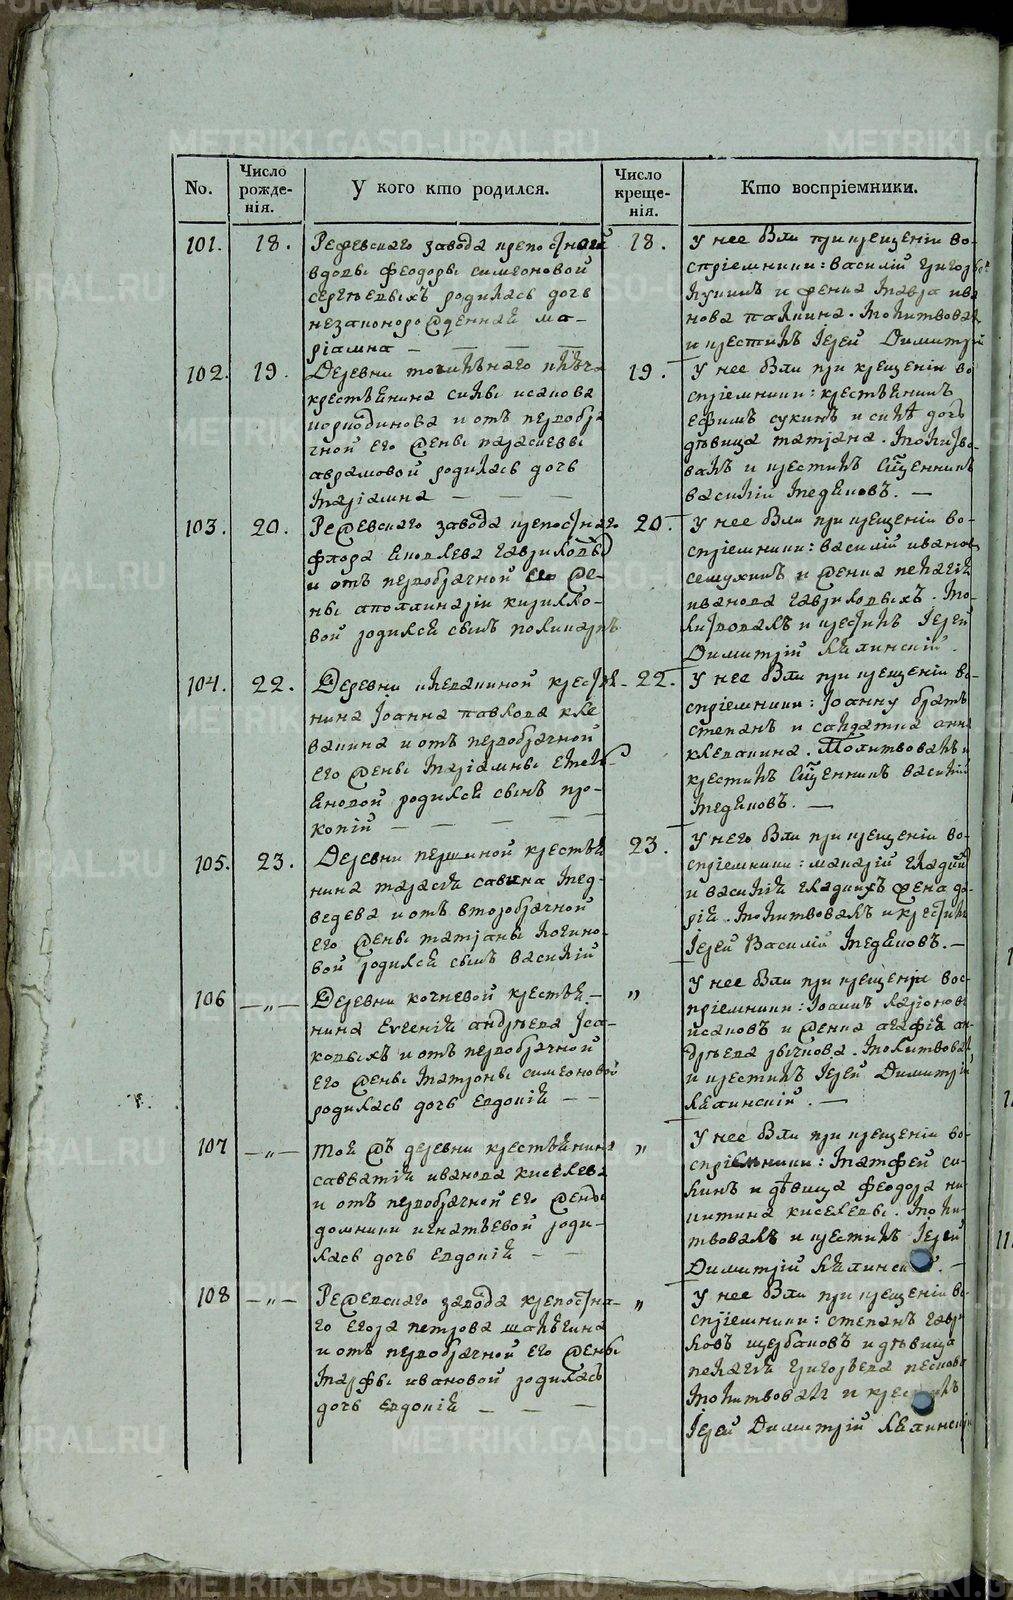 No.
Число рожде-нія.
У кого кто родился.
Число креще-нія.
Кто воспріемники.
101.
18.
Режевскаго завода крепостной
вдовы феодоры симеоновой
сергѣевыхъ родилась дочь
незаконорожденная ма-
ріамна —
18.
У нее были при крещеніи во-
спріемники: василій
и женка мавра ива
нова. молитвовал
и крестилъ Іерей Димитрій
102.
19.
Деревни точильнаго ключа
крестьянина силы исакова
и отъ первобра
чной его жены параскевы
аврамовой родилась дочь
маріамна —
19.
У нее были при крещеніи во
спріемники: крестьянинъ
ефимъ сукинъ и силы дочь
дѣвица татіана. молитво-
валъ и крестилъ Священникъ
василій. —
103.
20.
Режевскаго завода крепостнаго
флора яковлева гавриловы
и отъ первобрачной его же-
ны аполлинаріи кирилло-
вой родился сынъ поликарпъ
20.
У нее были при крещеніи во-
спріемники: василій иванов
и женка пелагія
иванова гавриловыхъ. мо-
литвовалъ и крестилъ Іерей
Димитрій.
104.
22.
Деревни клевакиной крестья-
нина Іоанна павлова кле
вакина и отъ первобрачной
его жены маріамны емель
яновой родился сынъ про-
копій —
22.
У нее были при крещеніи во-
спріемники: Іоанну братъ
степанъ и салдатка анна
клевакина. Молитвовалъ и
крестилъ Священникъ василій
105.
23.
Деревни першиной крестья
нина тарасія савина мед-
ведева и отъ второбрачной
его жены татіаны логино-
вой родился сынъ василій
23.
У него были при крещеніи во-
спріемники: макарій гладкий
и василія гладкихъ жена да-
рія. молитвовалъ и крестилъ
Іерей Василій. —
106
— „ —
Деревни кочневой крестья-
нина Евгенія андрѣева Іса-
ковыхъ и отъ первобрачной
его жены матроны симеоновой
родилась дочь евдокія — —
„
У нее были при крещеніи вос-
пріемники: Іоаннъ ларіоновъ
исаковъ и женка агафія ан-
дрѣева. молитвовал
и крестилъ Іерей Димитрій
107
— „ —
той жъ деревни крестьянина
савватія иванова киселева
и отъ первобрачной его жены
домники игнатьевой роди-
лась дочь евдокія —
„
У нее были при крещеніи во-
спріемники: матфей си-
линъ и дѣвица феодора ни-
китина киселевы. моли-
твовалъ и крестилъ Іерей
Димитрій. —
108
— „ —
Режевскаго завода крепостна-
го егора петрова
и отъ первобрачной его жены
марфы ивановой родилась
дочь евдокія —
„
У нее были при крещеніи во-
спріемники: степанъ гаври
ловъ щербаковъ и дѣвица
пелагія григорьева пескова
молитвовалъ и крестилъ
Іерей Димитрій
METRIKI.GASO-URAL.RU